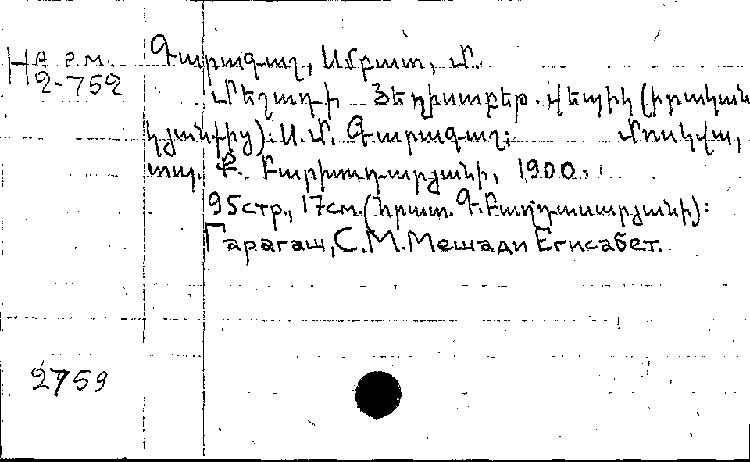 Арм.
H 2-752
Գարագաշ, Սմբատ, Մ.
Մեշադի Եղիսաբեթ. վեպիկ (իրական
կյանքից): Ս. Մ. Գարագաշ: Մոսկվա,
տպ. Բարխուդարյանի, 1900.
95стр., 17см. (հրատ. Գ. Բաղդասարյանի):
Гарагаш, С.М. Мешади Егисабет.
2759